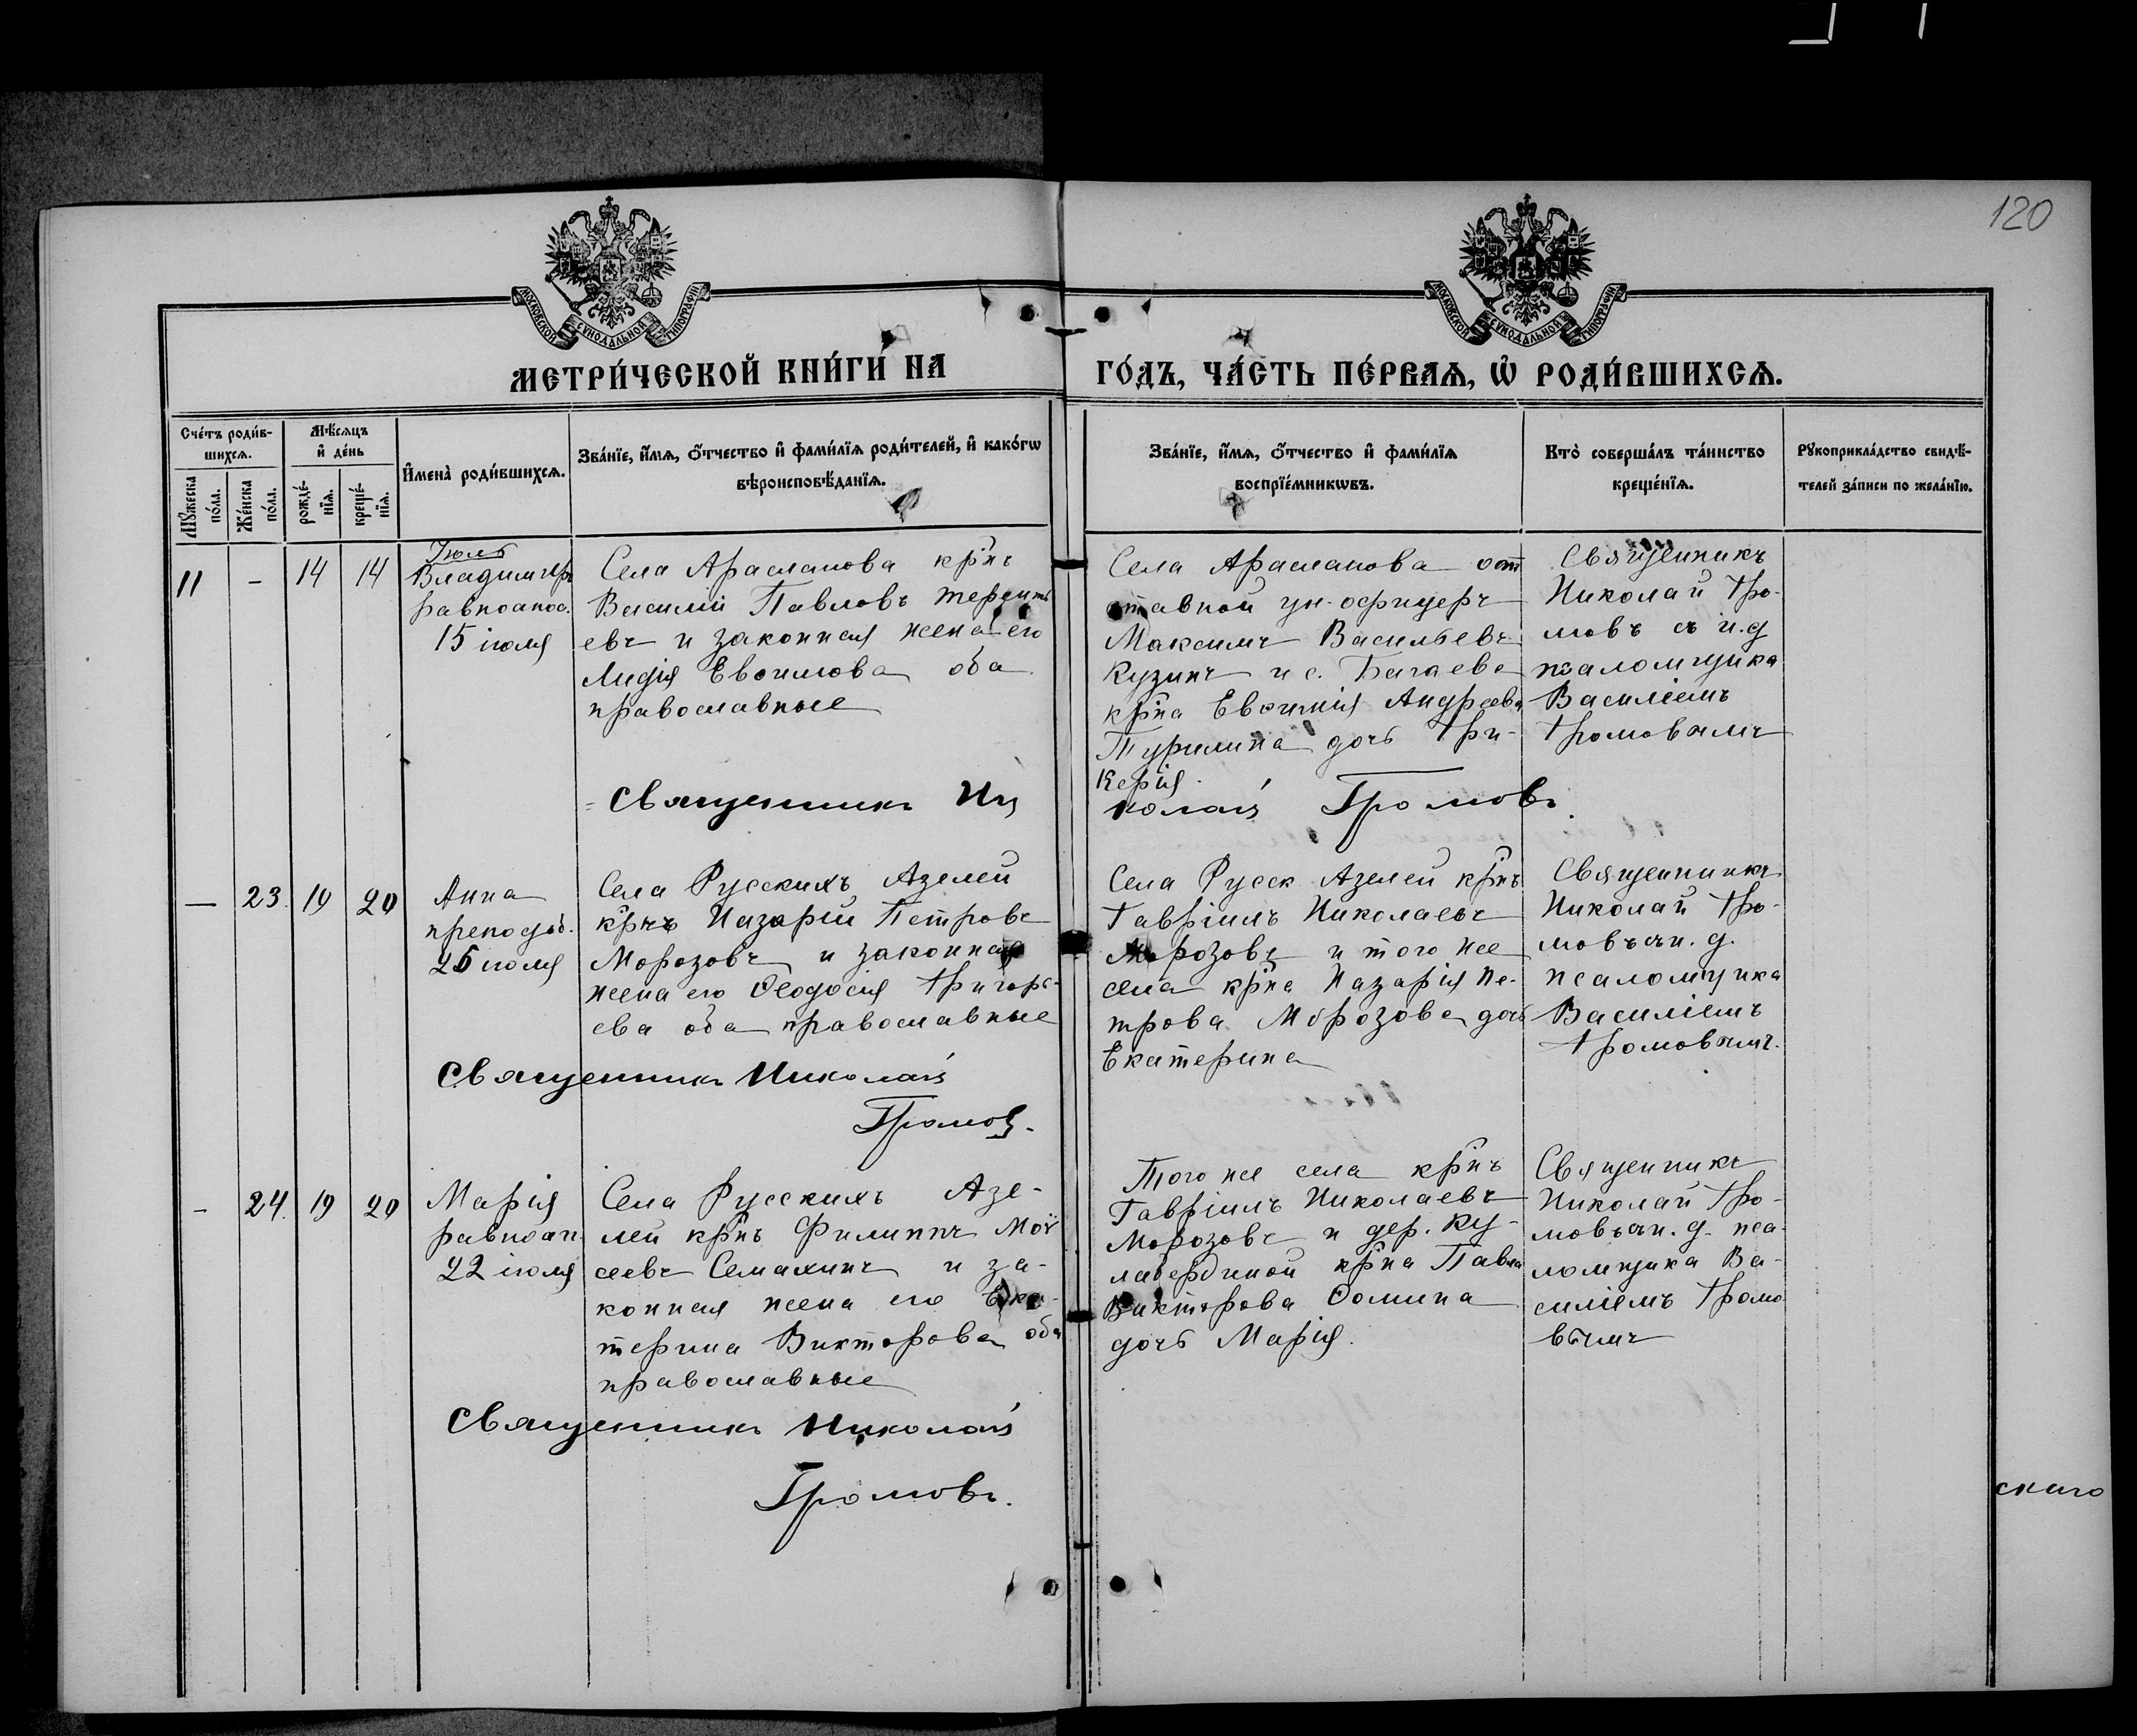 120
МОСКОВСКОЙ СѴНОДАЛЬНОЙ ТИПОГРАФІИ
МОСКОВСКОЙ СѴНОДАЛЬНОЙ ТИПОГРАФІИ
МЕТРИ́ЧЕСКОЙ КНИ́ГИ НА
ГО́ДЪ, ЧА́СТЬ ПЕ́РВАѦ, Ѡ҆ РОДИ́ВШИХСѦ.
Сче́тъ роди́в-
шихсѧ.
Мꙋ́жеска по́ла.
Же́нска по́ла.
Мѣ́сѧцъ
и҆ де́нь
рожде́-
нїѧ.
креще́-
нїѧ.
И҆мена̀ роди́вшихсѧ.
Зва́нїе, и҆́мѧ, ѻ҆́тчество и҆ фами́лїѧ роди́телей, и҆ како́гѡ
вѣроисповѣ́данїѧ.
Зва́нїе, и҆́мѧ, ѻ҆́тчество и҆ фами́лїѧ
воспрїе́мникѡвъ.
Кто̀ соверша́лъ та́инство
креще́нїѧ.
Рꙋкоприкла́дство свидѣ́-
телей за́писи по жела́нїю.
11 - 14 14
Іюль
Владимиръ
равноапос.
15 іюля
Села Арасланова кр̃нъ
Василій Павловъ
евъ и законная жена его
Лидія Евѳимова оба
православные
Села Арасланова от
ставной ун-офицеръ
Максимъ Васильевъ
Кузинъ и с. Багаева
кр̃на Евѳимія Андреева
Турилина дочь Гли-
керія
Священникъ
Николай Гро-
мовъ съ и.д
псаломщика
Василіемъ
Громовымъ
Священникъ Ни
колай Громовъ.
— 23. 19 20
Анна
преподоб.
25 іюля
Села Русскихъ Азелей
кр̃нъ Назарій Петровъ
Морозовъ и законная
жена его Ѳеодосія Григорь-
ева оба православные
Села Русск Азелей кр̃нъ
Гавріилъ Николаевъ
Морозовъ и того же
села кр̃на Назарія Пе-
трова Морозова дочь
Екатерина
Священникъ
Николай Гро-
мовъ съ и. д.
псаломщика
Василіемъ
Громовымъ.
Священникъ Николай
Громовъ.
- 24. 19 20
Марія
равноап
22 іюля
Села Русскихъ Азе-
лей кр̃нъ Филиппъ Мої
сеевъ Семахинъ и за-
конная жена его Ека-
терина Викторова оба
православные
Того же села кр̃нъ
Гавріилъ Николаевъ
Морозовъ и дер. Ку-
лабердиной кр̃на Павла
Викторова Ѳомина
дочь Марія.
Священникъ
Николай Гро-
мовъ съ и. д. пса-
ломщика Ва-
силіемъ Громо
вымъ
Священникъ Николай
Громовъ.
скаго